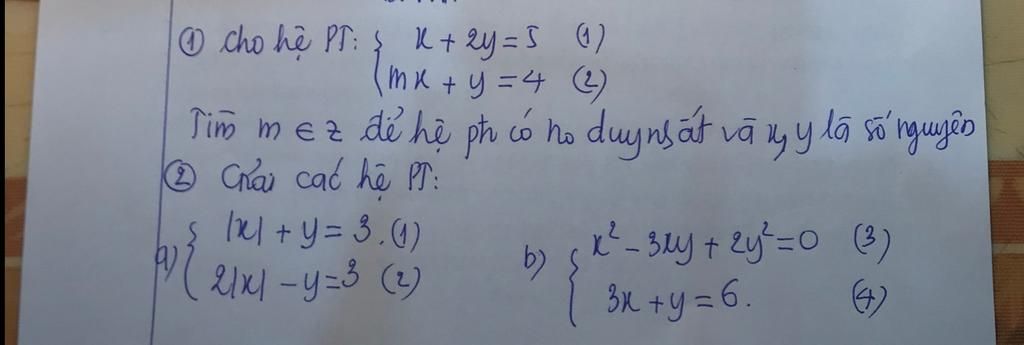 ① Cho hệ PT: { x + 2y = 5 (1)
mx + y = 4 (2)
Tìm m ∈ Z để hệ pt có no duy nhất và x, y là số nguyên
② Giải các hệ PT:
a) { |x| + y = 3. (1)
2|x| - y = 3 (2)
b) { x² - 3xy + 2y² = 0 (3)
3x + y = 6. (4)